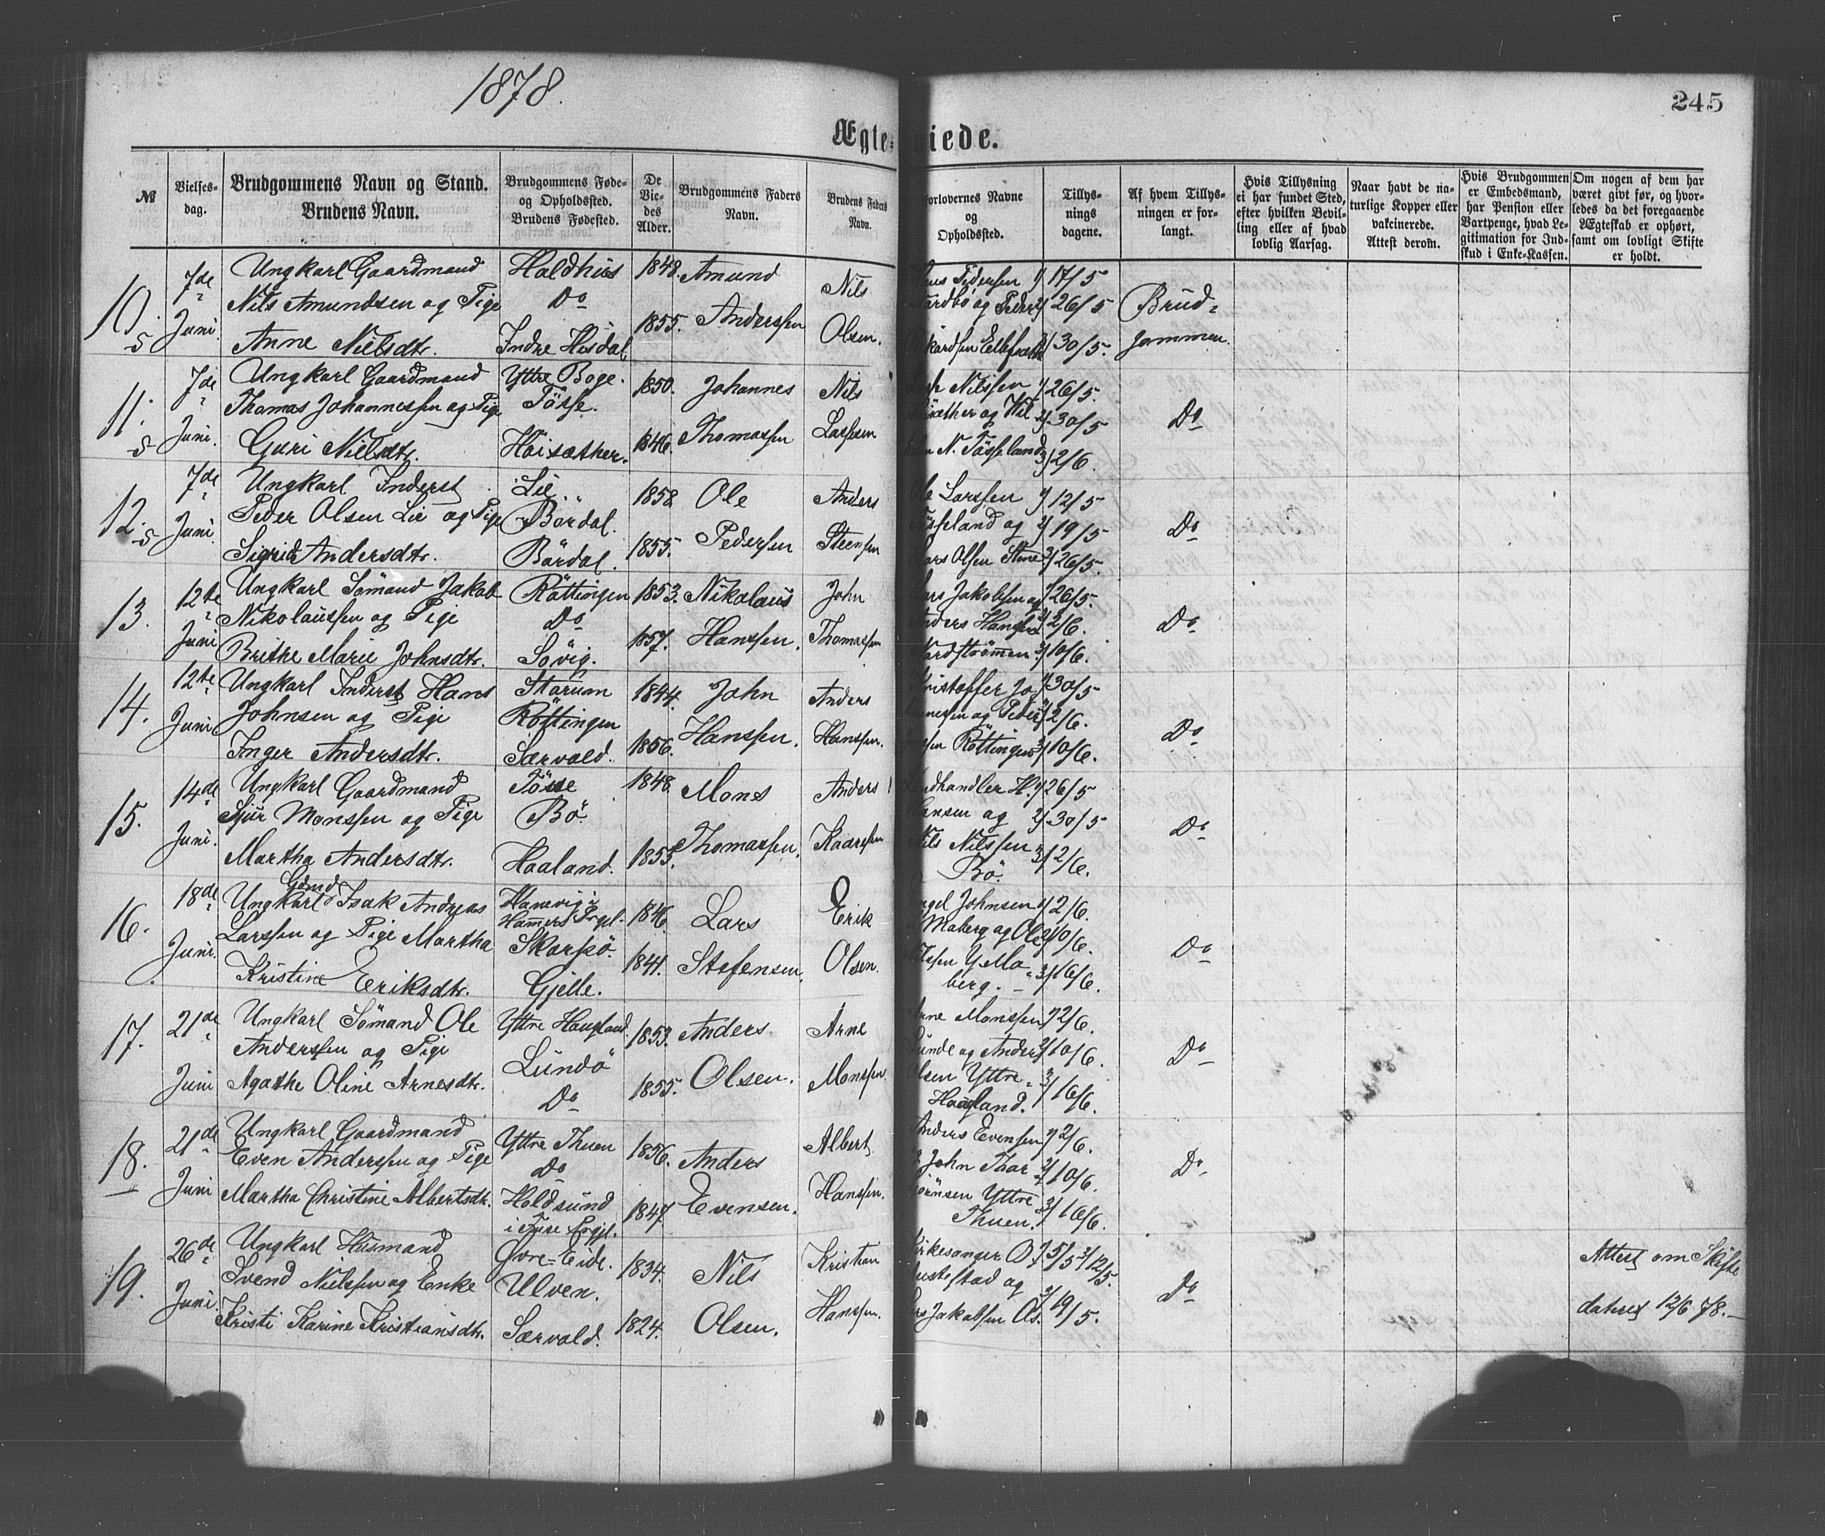 1878.
245
Ægte-
iede.
№
Vielses-
dag.
Brudgommens Navn og Stand.
Brudens Navn.
Brudgommens Føde-
og Opholdsted.
Brudens Fødested.
De
Vie-
des
Alder.
Brudgommens Faders
Navn.
Brudens Faders
Navn.
orlovernes Navne
og
Opholdsted.
Tillys-
nings
dagene.
Af hvem Tillys-
ningen er for-
langt.
Hvis Tillysning
ei har fundet Sted,
efter hvilken Bevil-
ling eller af hvad
lovlig Aarsag.
Naar havt de na-
turlige Kopper eller
vakcinerede.
Attest derom.
Hvis Brudgommen
er Embedsmand,
har Pension eller
Vartpenge, hvad Le-
gitimation for Ind-
skud i Enke-Kassen.
Om nogen af dem har
været givt før, og hvor-
ledes da det foregaaende
Ægteskab er ophørt,
samt om lovligt Skifte
er holdt.
10. 7de Juni
Ungkarl Gaardmand
Nils Amundsen og Pige
Anne Nielsdtr.
Holdhus
Do
Indre Hisdal
1848.
1855.
Amund
Anderssen
Nils
Olsen.
Pedersen 1/ 17/5
og Peder 2/ 26/5
3/ 30/5.
Brud-
gommen.
11. 7de Juni.
Ungkarl Gaardmand
Thomas Johannessen og Pige
Guri Nielsdtr.
Yttre Boge.
Tösse.
Höisæther.
1850.
1846.
Johannes
Thomassen
Nils
Lassesen
Nilssen 1/ 26/5.
sæther og Nil 2/ 30/5
N. Tösseland 3/ 2/6.
Do
12. 7de Juni.
Ungkarl Inderst
Peder Olsen Lie og Pige
Sigrid Andersdtr.
Lie
Bördal.
Bördal.
1858
1855.
Ole
Pedersen
Anders
Steensen
Ole Larssen 1/ 12/5
Tösseland og 2/ 19/5
Lars Olsen 3/ 26/5.
Do
13. 12te Juni
Ungkarl Sömand Jakob
Nikolaussen og Pige
Brithe Marie Johnsdtr.
Röttingen
Do
Sövig.
1853.
1857.
Nikolaus
Hanssen.
John
Thomassen
Jakobsen og 1/ 26/5.
Anders Hanssen 2/ 2/6.
Nordströmmen 3/ 10/6.
Do
14. 12te Juni
Ungkarl Inderst Hans
Johnsen og Pige
Inger Andersdtr.
Storum
Röttingen
Særvold.
1844.
1856.
John
Hanssen.
Anders
Hanssen.
Kristoffer Jo 1/ 30/5
og Peder 2/ 2/6.
Röttingen 3/ 10/6.
Do
15. 14de Juni.
Ungkarl Gaardmand
Sjur Monssen og Pige
Martha Andersdtr.
Tösse
Bö.
Haaland.
1848.
1855.
Mons
Thomassen.
Anders
Kaaressen
Landhandler H. 1/ 26/5
Hansen og 2/ 30/5
Nils Nilssen 3/ 2/6.
Bö.
Do
16. 18de Juni.
Gdmd
Ungkarl Isak Andreas
Larssen og Pige Martha
Kristine Eriksdtr.
Hanevig i
Hammers Prgjl.
Skarpö.
Gjelle.
1846.
1841.
Lars
Stefensen
Erik
Olsen.
Johnsen 1/ 2/6.
Moberg og Ole 2/ 10/6.
Y. Mo- 3/ 16/6.
berg.
Do
17. 21de Juni
Ungkarl Sömand Ole
Anderssen og Pige
Agathe Oline Arnesdtr.
Yttre Haugland
Lundö
Do
1853.
1855.
Anders
Olsen.
Arne
Monssen
Arne Monssen 1/ 2/6.
Lunde og Anders 2/ 10/6.
Olsen Yttre 3/ 16/6.
Haugland.
Do
18. 21de Juni
Ungkarl Gaardmand
Even Anderssen og Pige
Martha Christine Albertsdtr.
Yttre Thuen
Do
Holdsund
i Fuse Prgjl.
1856.
1847
Anders
Evensen.
Albert
Hanssen.
Anders Evensen 1/ 2/6.
John Thor 2/ 10/6.
Yttre 3/ 16/6.
Thuen.
Do
19. 26de Juni
Ungkarl Husmand
Svend Nielssen og Enke
Kristi Karine Kristiansdtr.
Övre-Eide.
Ulven.
Særvold.
1834.
1824.
Nils
Olsen.
Kristian
Hanssen.
Kirkesanger O. 1/ 5/5 2/ 12/5.
og 3/ 19/5.
Jakobsen Os.
Do
Attest om Skifte
dateret 12/6 78.